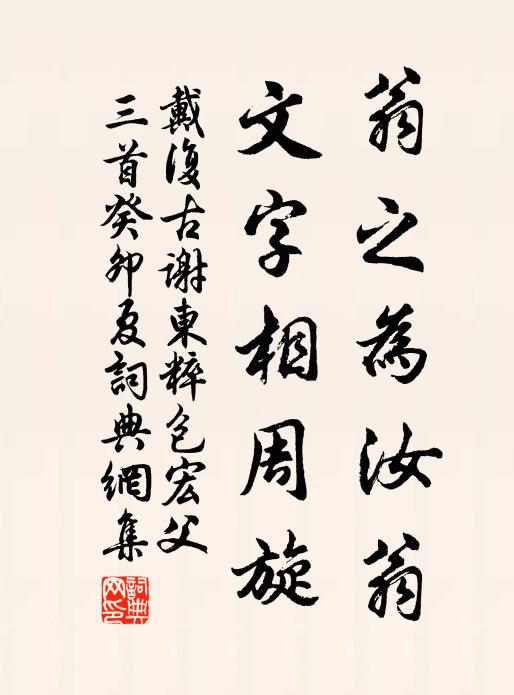 翁之為汝翁
文字相周旋
戴復古謝東粹包宏父
三首癸卯夏詞典網集
詞典網印